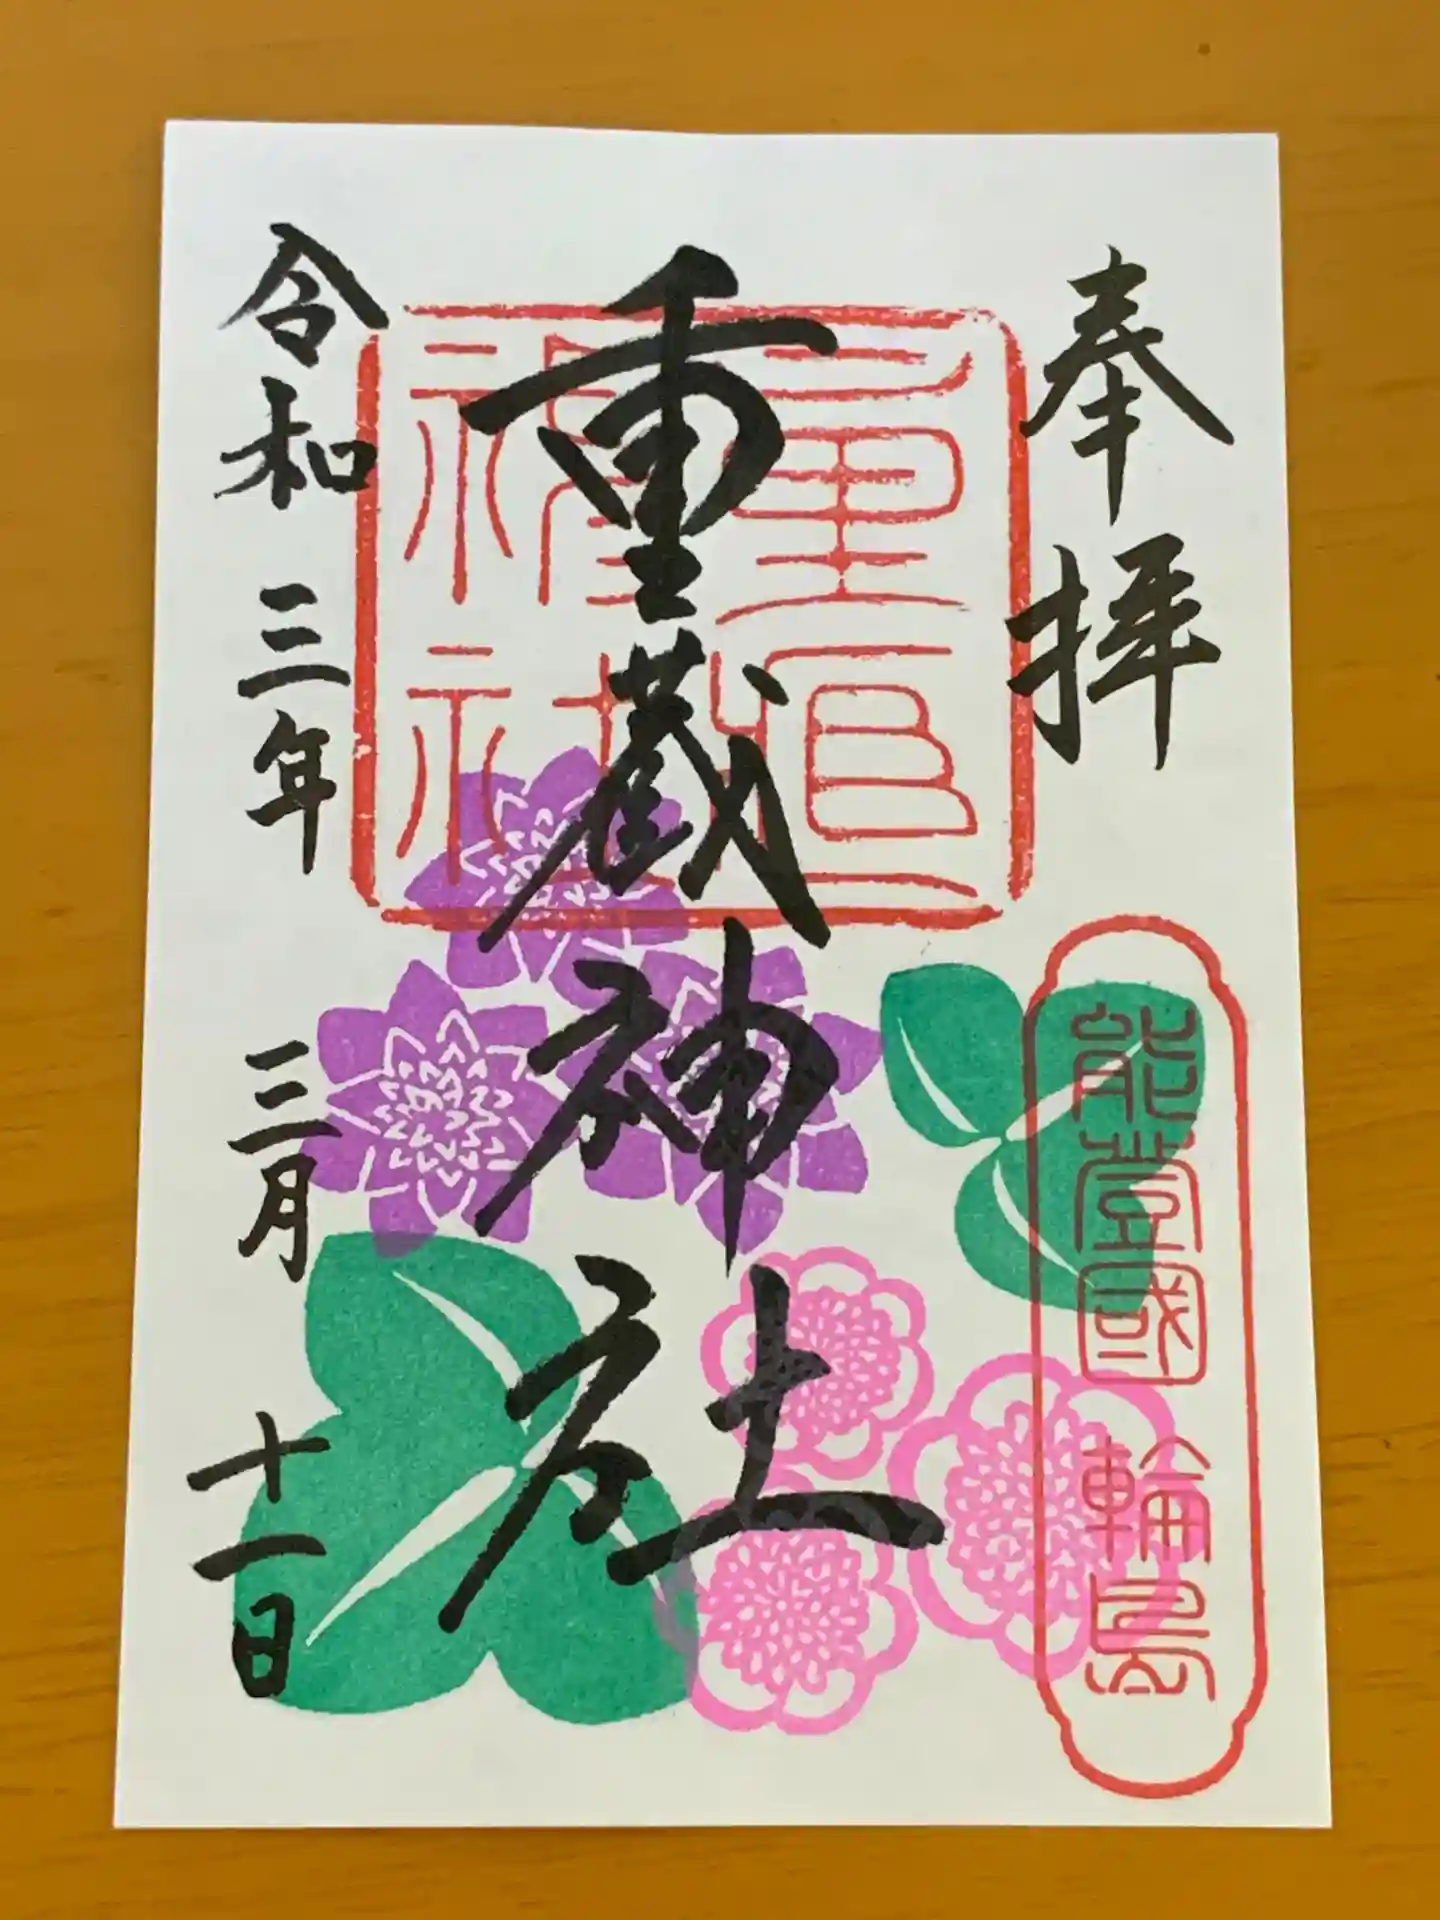 奉拝
能登國 輪島
重蔵神社
重蔵神社
令和三年三月十一日